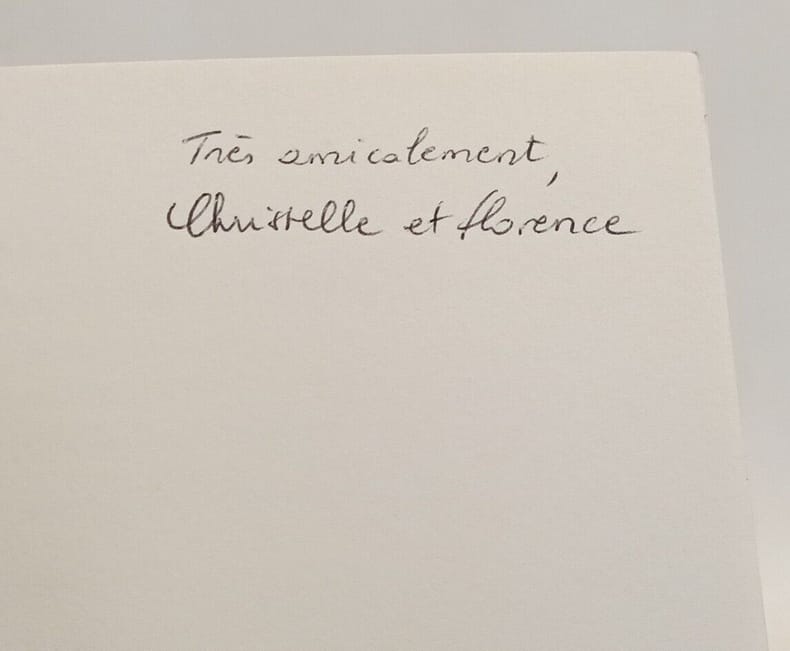 Très amicalement,
Christelle et florence